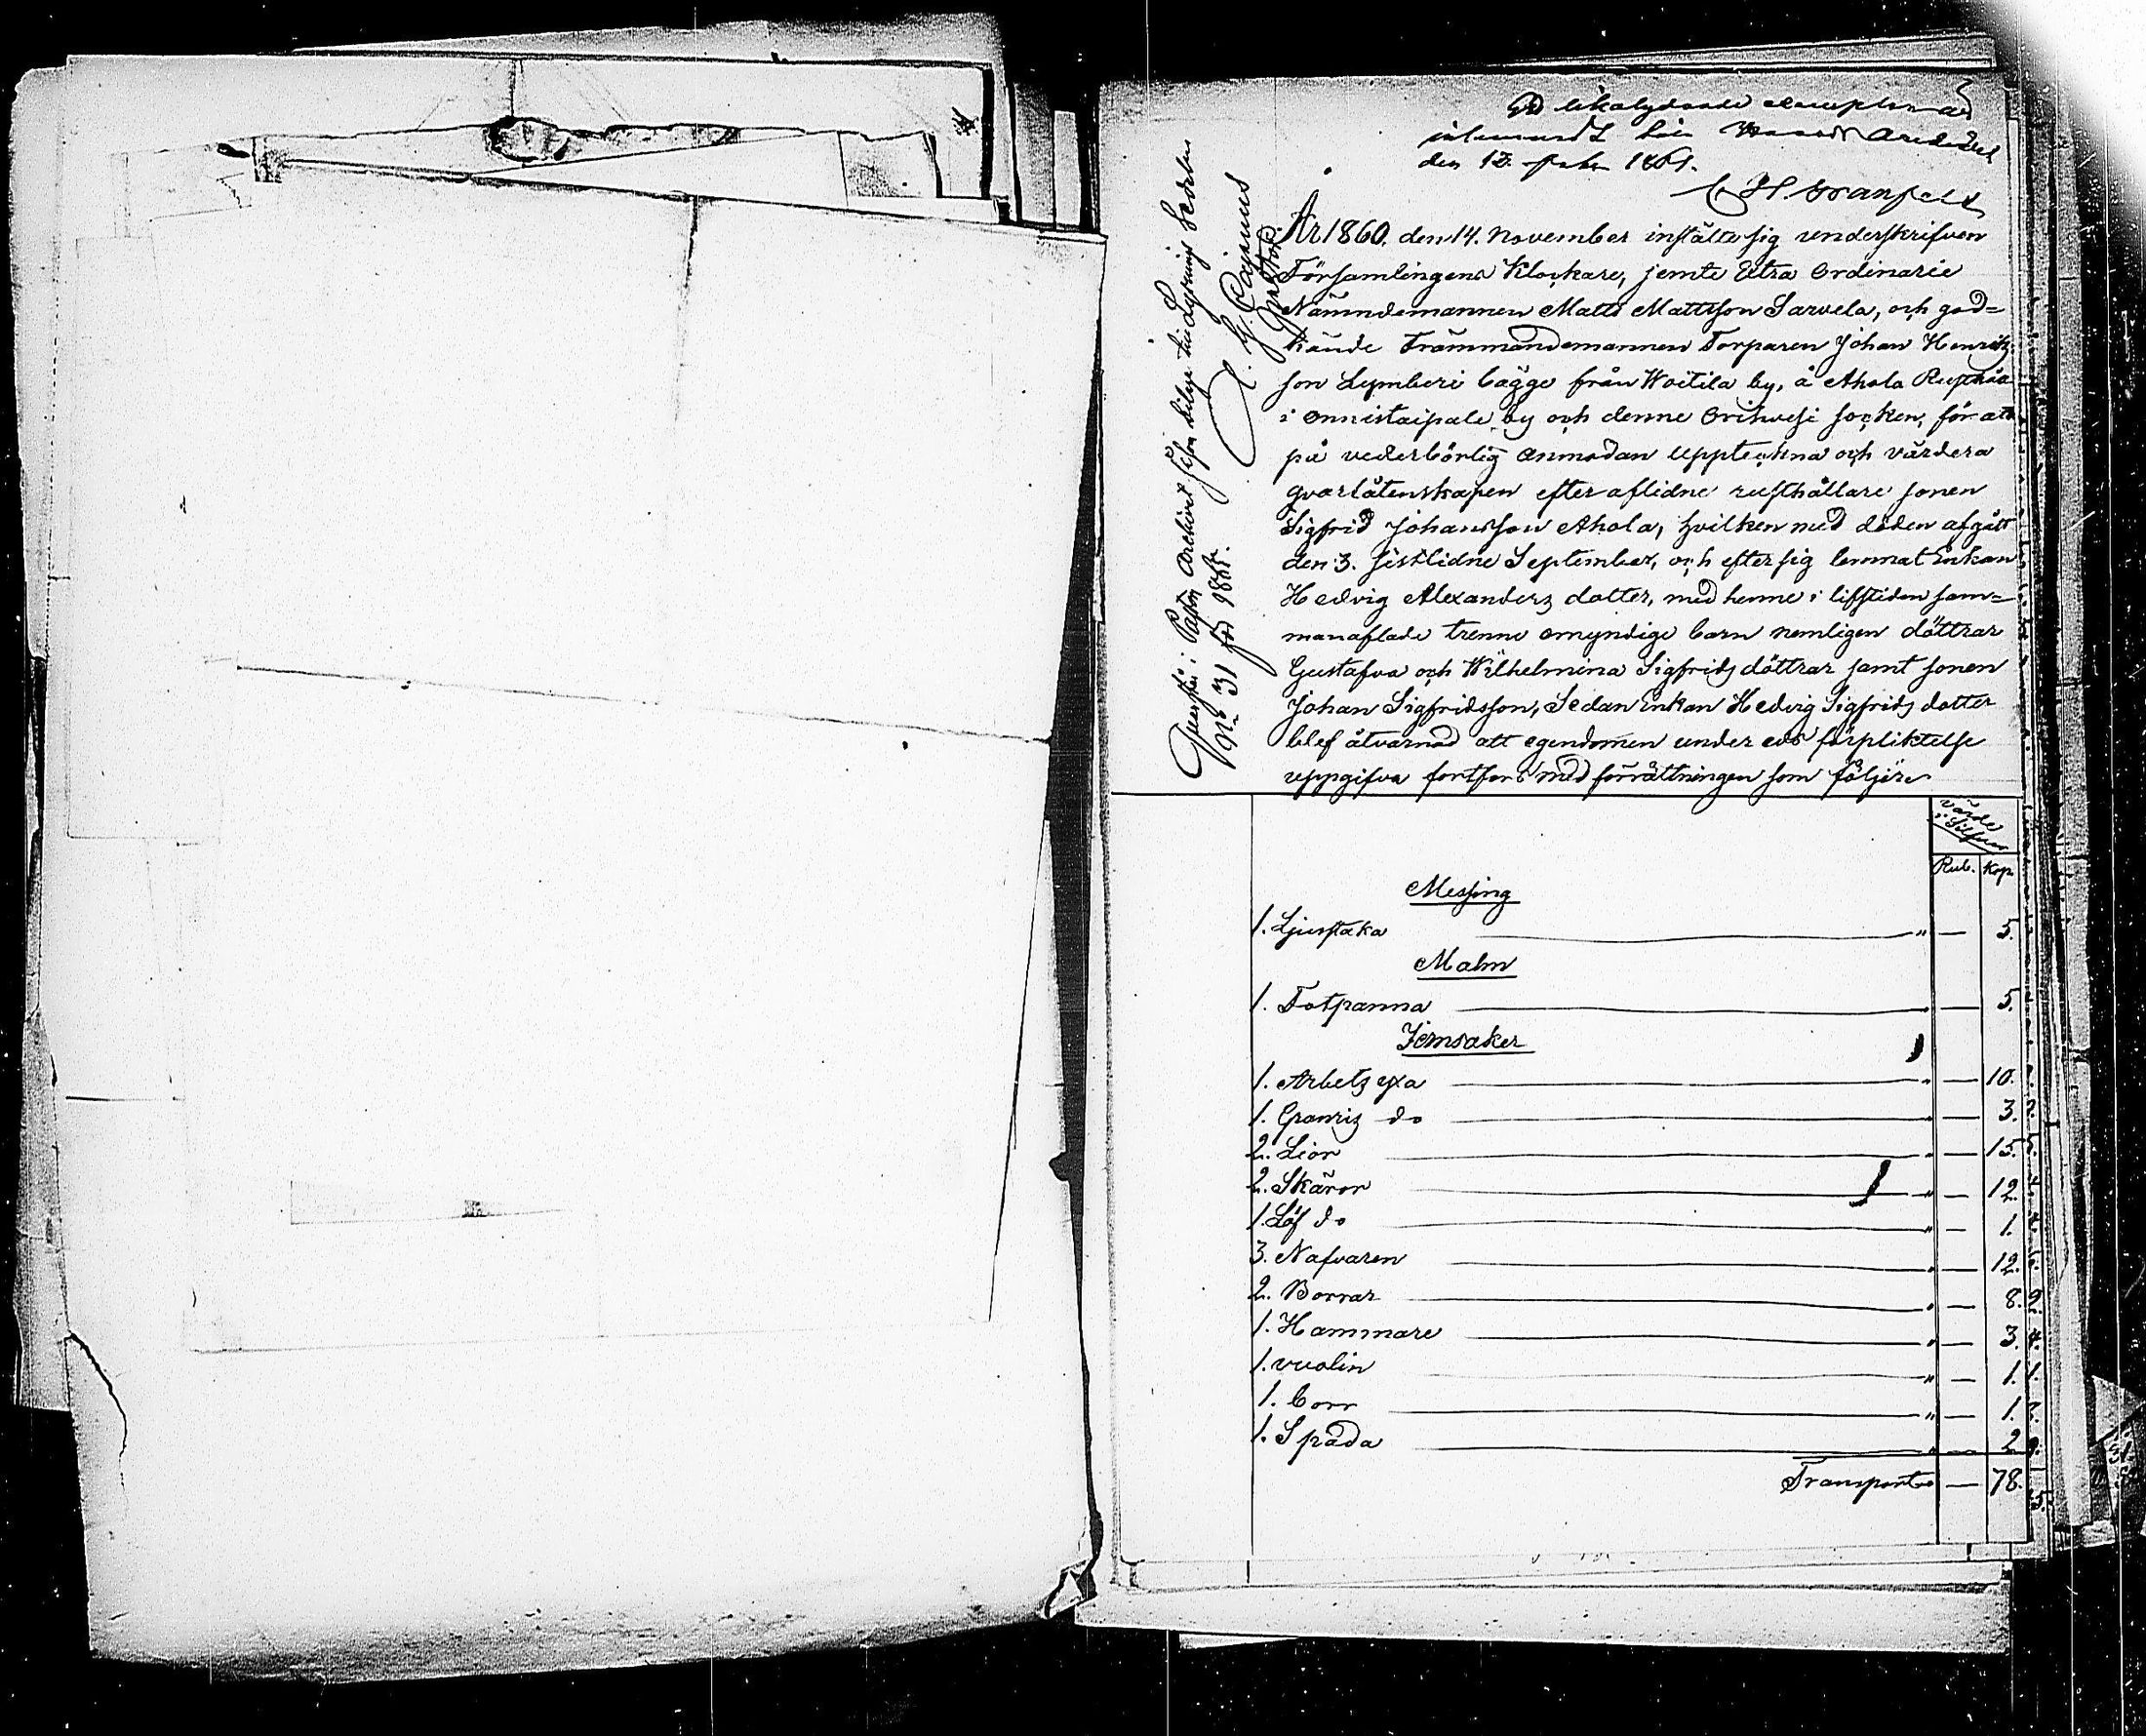 likalydande exemplar
den 12. 1861.
År 1860. den 14. November instälte sig underskrifven
Församlingens Klockare, jemte Extra Ordinarie
Nämndemannen Matts Mattsson Sarvela, och god=
kände Främmandemannen Torparen Johan Henriks
son Lymberi begge från Woitila by, å Ahola Rusthåll
i Onnistaipale by och denne Orihvesi socken, för att
på vederbörlig anmodan uppteckna och värdera
qvarlåtenskapen efter aflidne rusthållare sonen
Sigfrid Johansson Ahola, hvilken med döden afgått
den 3. sistlidne September, och efter sig lemnat Enkan
Hedvig Alexanders dotter, med henne i lifstiden sam=
manaflade trenne omyndige barn nemligen döttrar
Gustafva och Wilhelmina Sigfrids döttrar samt sonen
Johan Sigfridsson, Sedan Enkan Hedvig Sigfrids dotter
blef åtvarnad att egendomen under eds förpliktelse
uppgifva fortfors med förrättningen som följer
i Archivet
No 31 för 1865.
värde
i Silfver
Rub. Kop
Messing
1. Ljusstaka " — 5.
Malm
1. Fotpanna " — 5.
Jernsaker
1. Arbets yxa " — 10.
1. Granris do " — 3.
2. Lior " — 15.
2. Skäror " — 12.
1. Löf do " — 1.
3. Nafvaren " — 12.
2. Borrar " — 8.
1. Hammare " — 3.
1. vuolin " — 1.
1. borr " — 1.
1. Spada " — 2.
Transport — 78.